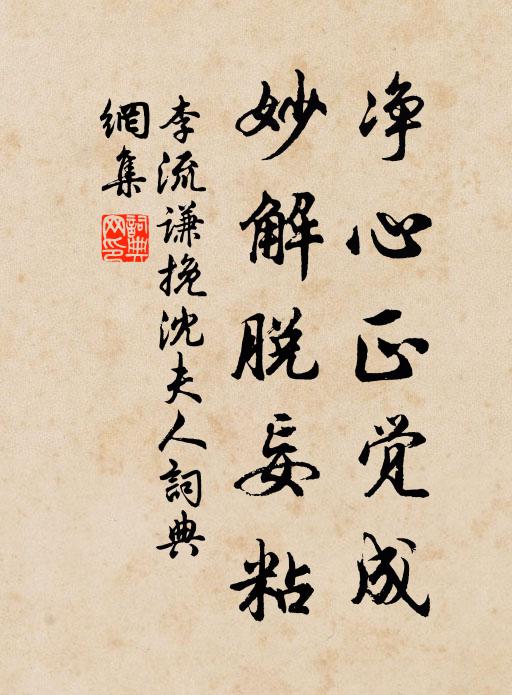 净心正觉成
妙解脱妄粘
李流谦挽沈夫人詞典
網集
詞典
网印